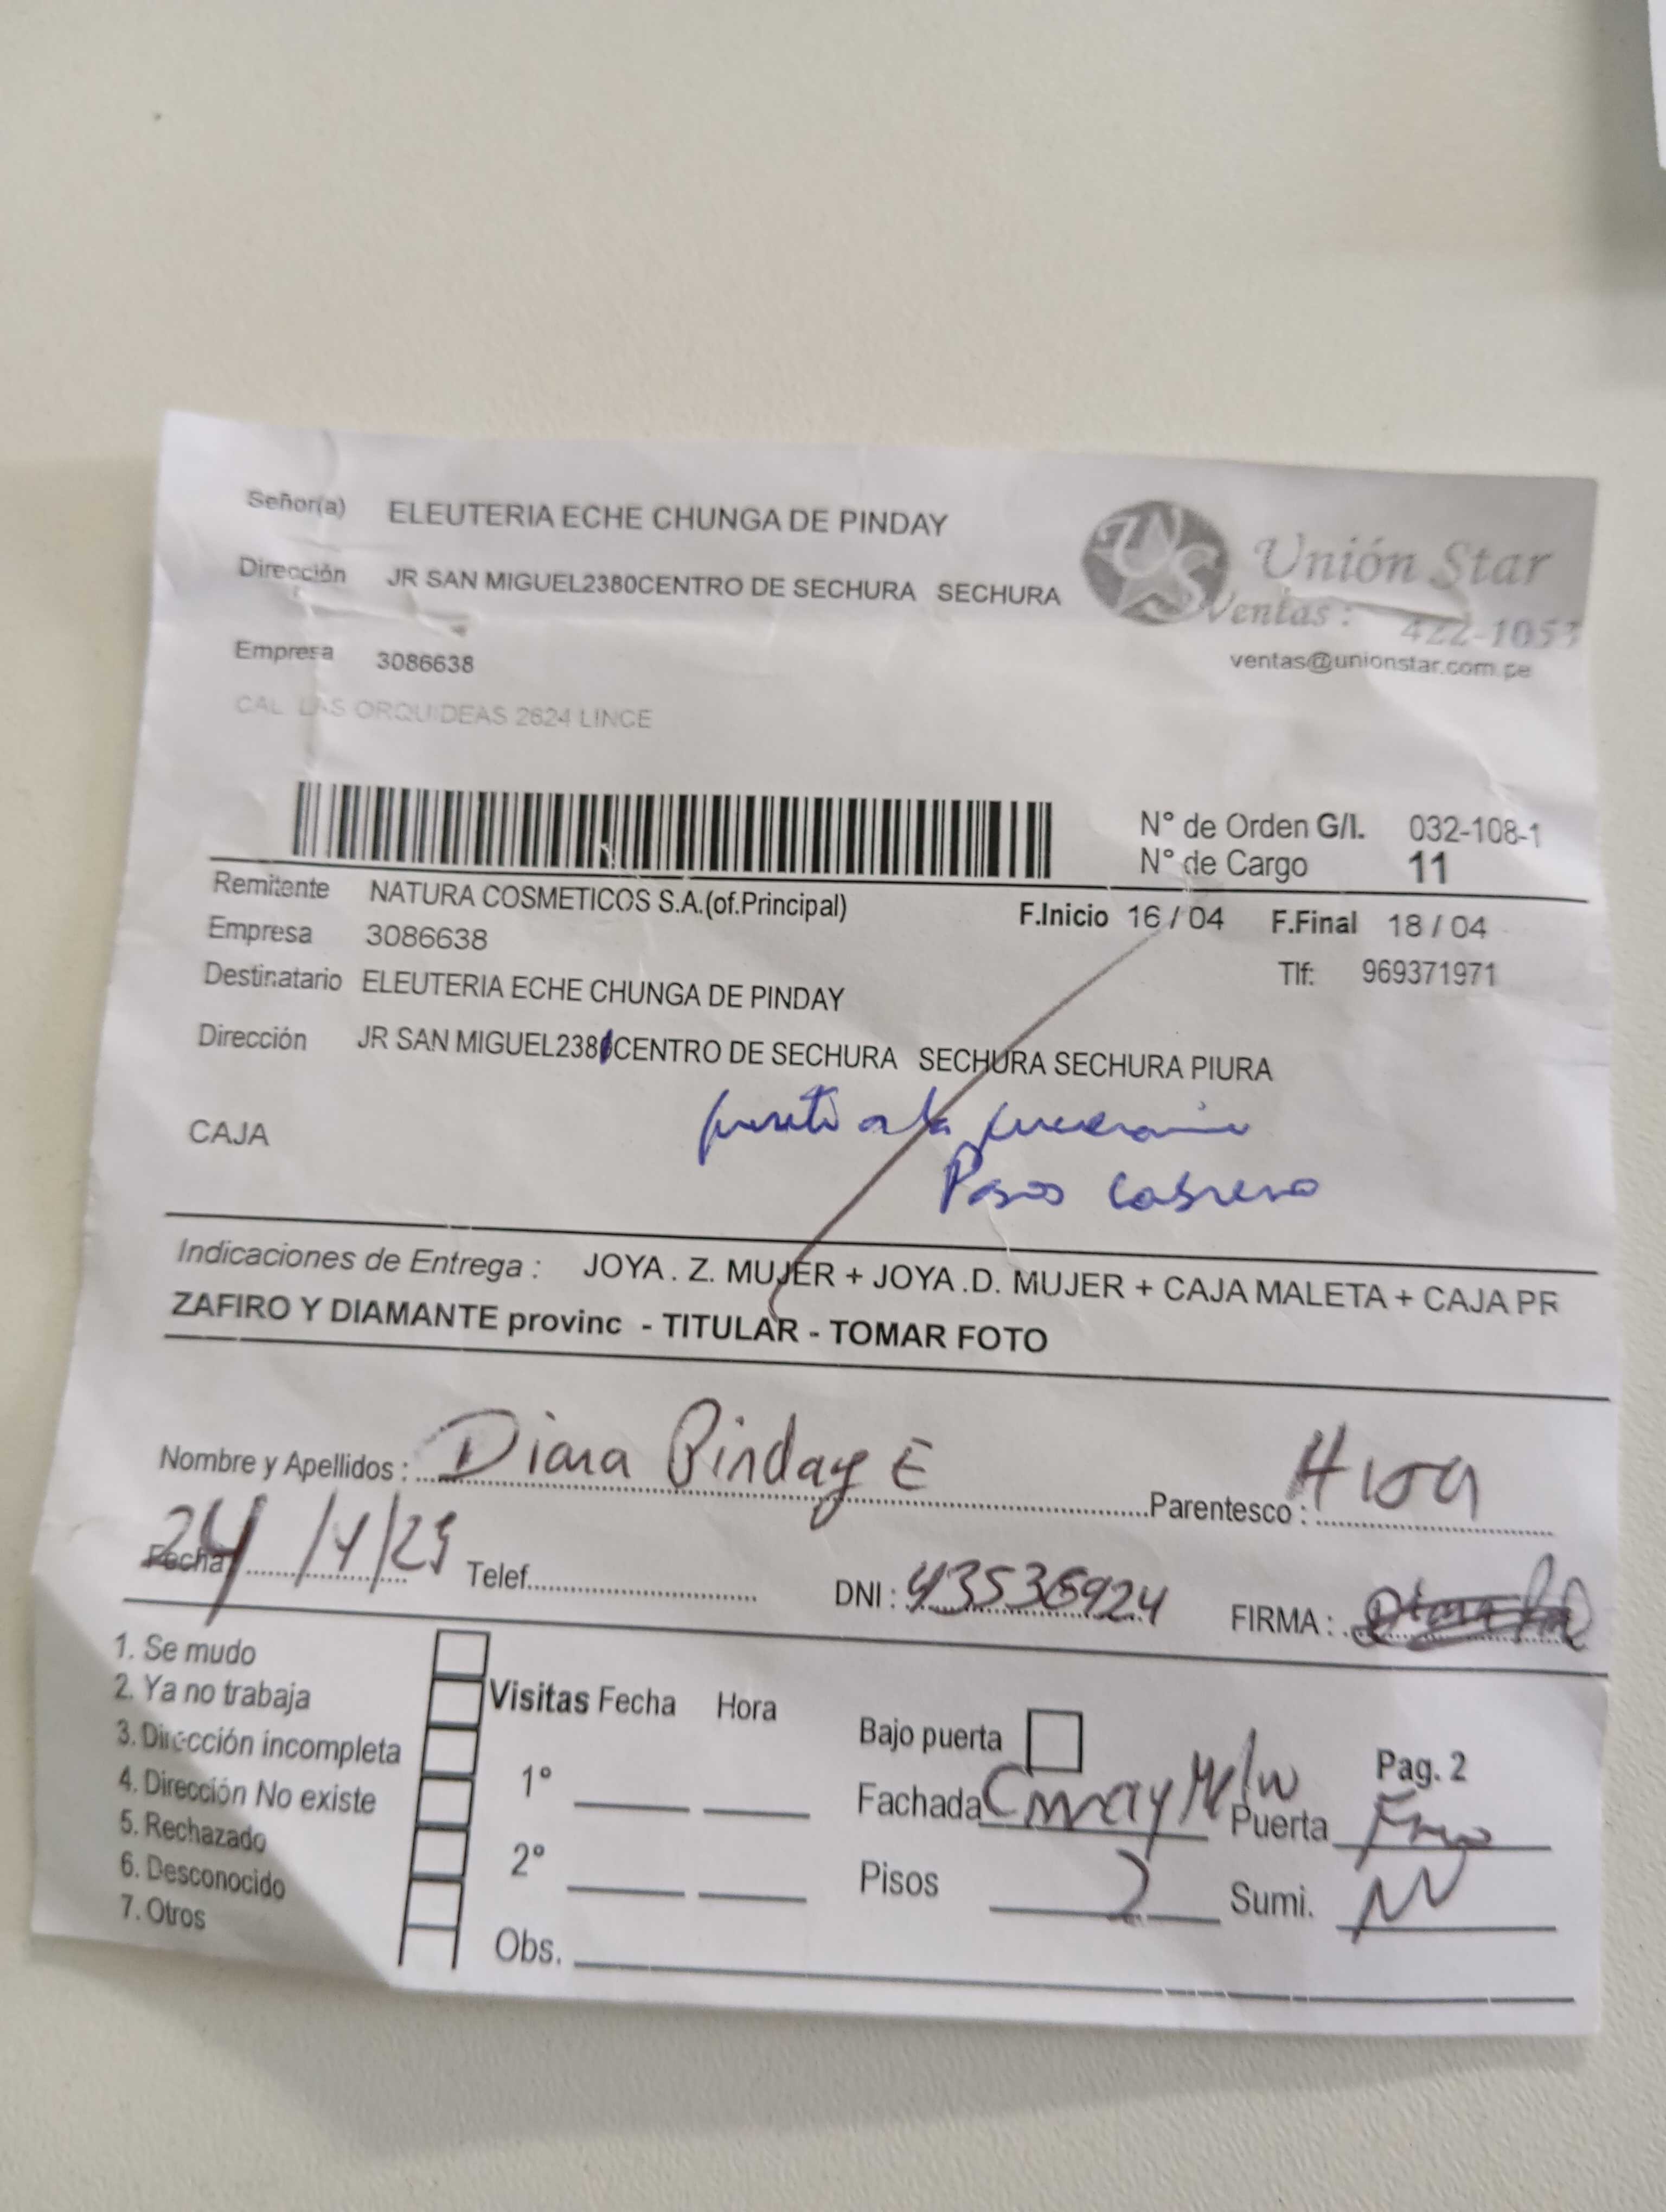 Señor(a) ELEUTERIA ECHE CHUNGA DE PINDAY
Dirección JR SAN MIGUEL2380CENTRO DE SECHURA SECHURA
Unión Star
Ventas : 422-1053
ventas@unionstar.com.pe
Empresa 3086638
CAL LAS ORQUIDEAS 2624 LINCE
N° de Orden G/I. 032-108-1
N° de Cargo 11
Remitente NATURA COSMETICOS S.A.(of.Principal)
F.Inicio 16 / 04 F.Final 18 / 04
Empresa 3086638
Tlf: 969371971
Destinatario ELEUTERIA ECHE CHUNGA DE PINDAY
Dirección JR SAN MIGUEL238 CENTRO DE SECHURA SECHURA SECHURA PIURA
a la
CAJA
Indicaciones de Entrega : JOYA . Z. MUJER + JOYA .D. MUJER + CAJA MALETA + CAJA PR
ZAFIRO Y DIAMANTE provinc - TITULAR - TOMAR FOTO
Nombre y Apellidos : Diana Pinday E Parentesco : Hija
Fecha 24/4/25 Telef. DNI : 43536924 FIRMA :
1. Se mudo
2. Ya no trabaja
3. Dirección incompleta
4. Dirección No existe
5. Rechazado
6. Desconocido
7. Otros
Visitas Fecha Hora
1°
2°
Obs.
Bajo puerta
Pag. 2
Fachada Puerta
Pisos 2 Sumi.